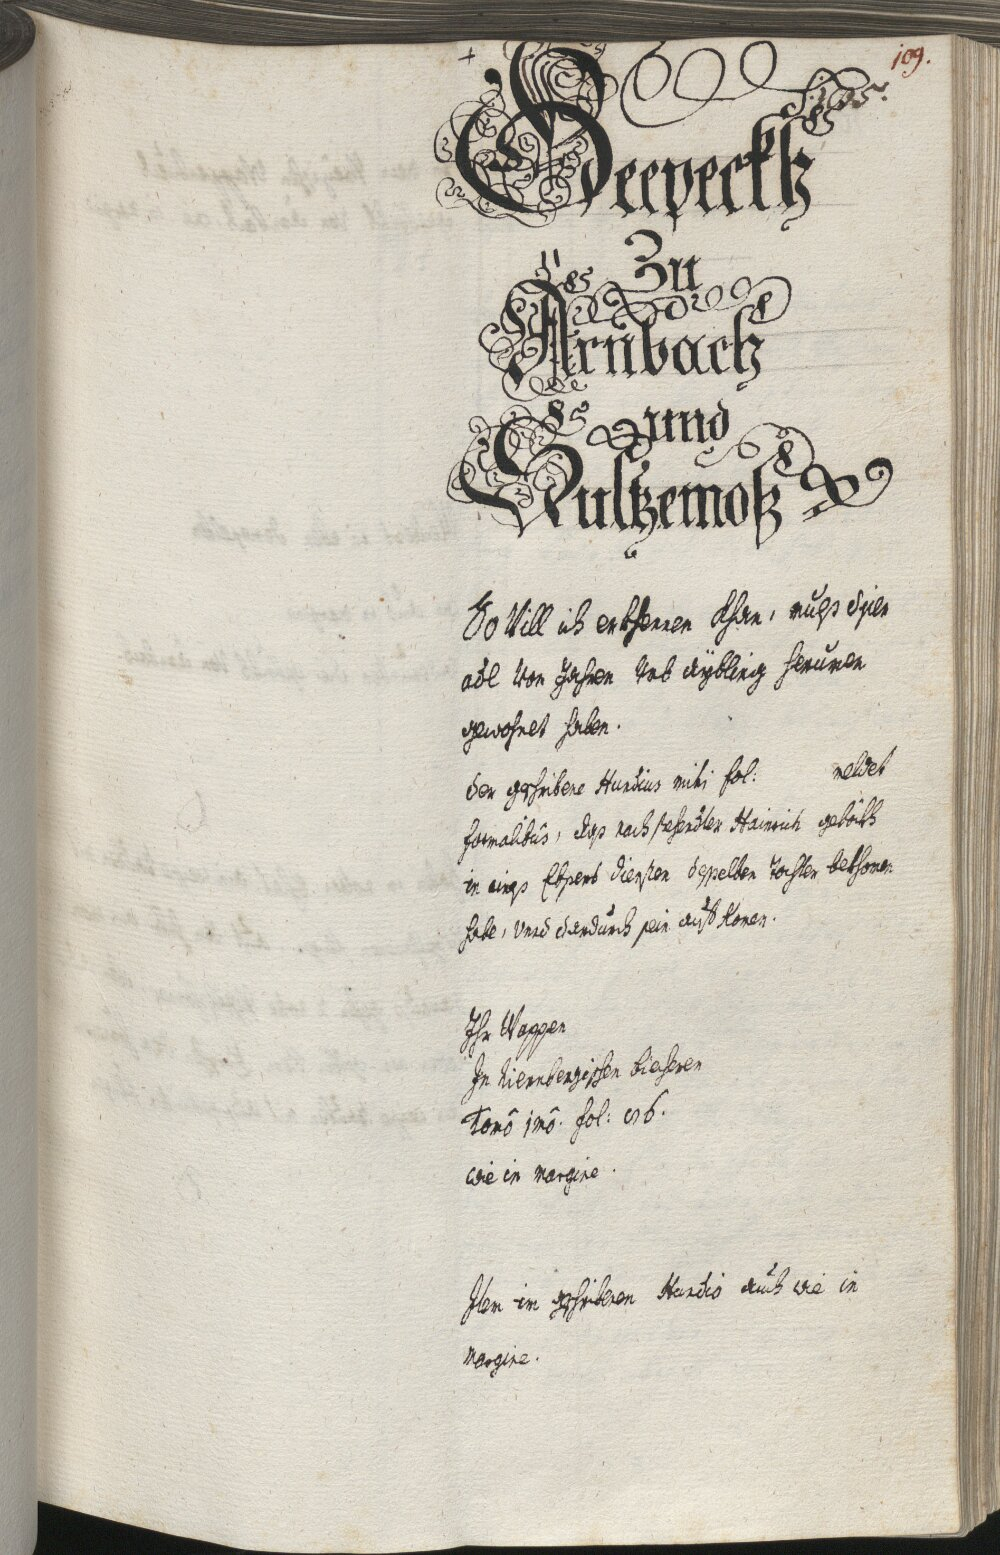 109.
105.
Geepeckh
Zu
Arnbach
und
Sultzemoß
So Vill ich erkhennen khan, muess diser
adl von Jahren umb aÿbling herumen
gewohnet haben.
der gschribene Hundius mihi fol: meldet
formalibus, dass nachstehender Hainrich gebökh
in aines Ebsers diensten desselben Tochter bekhomen
habe, Unnd dardurch sein aufkhomen.
Ihr Wappen
In Niernbergischen biecheren
Tomô 1mô. fol: 86.
wie in margine.
Item im gschribenen Hundio auch wie in
margine.